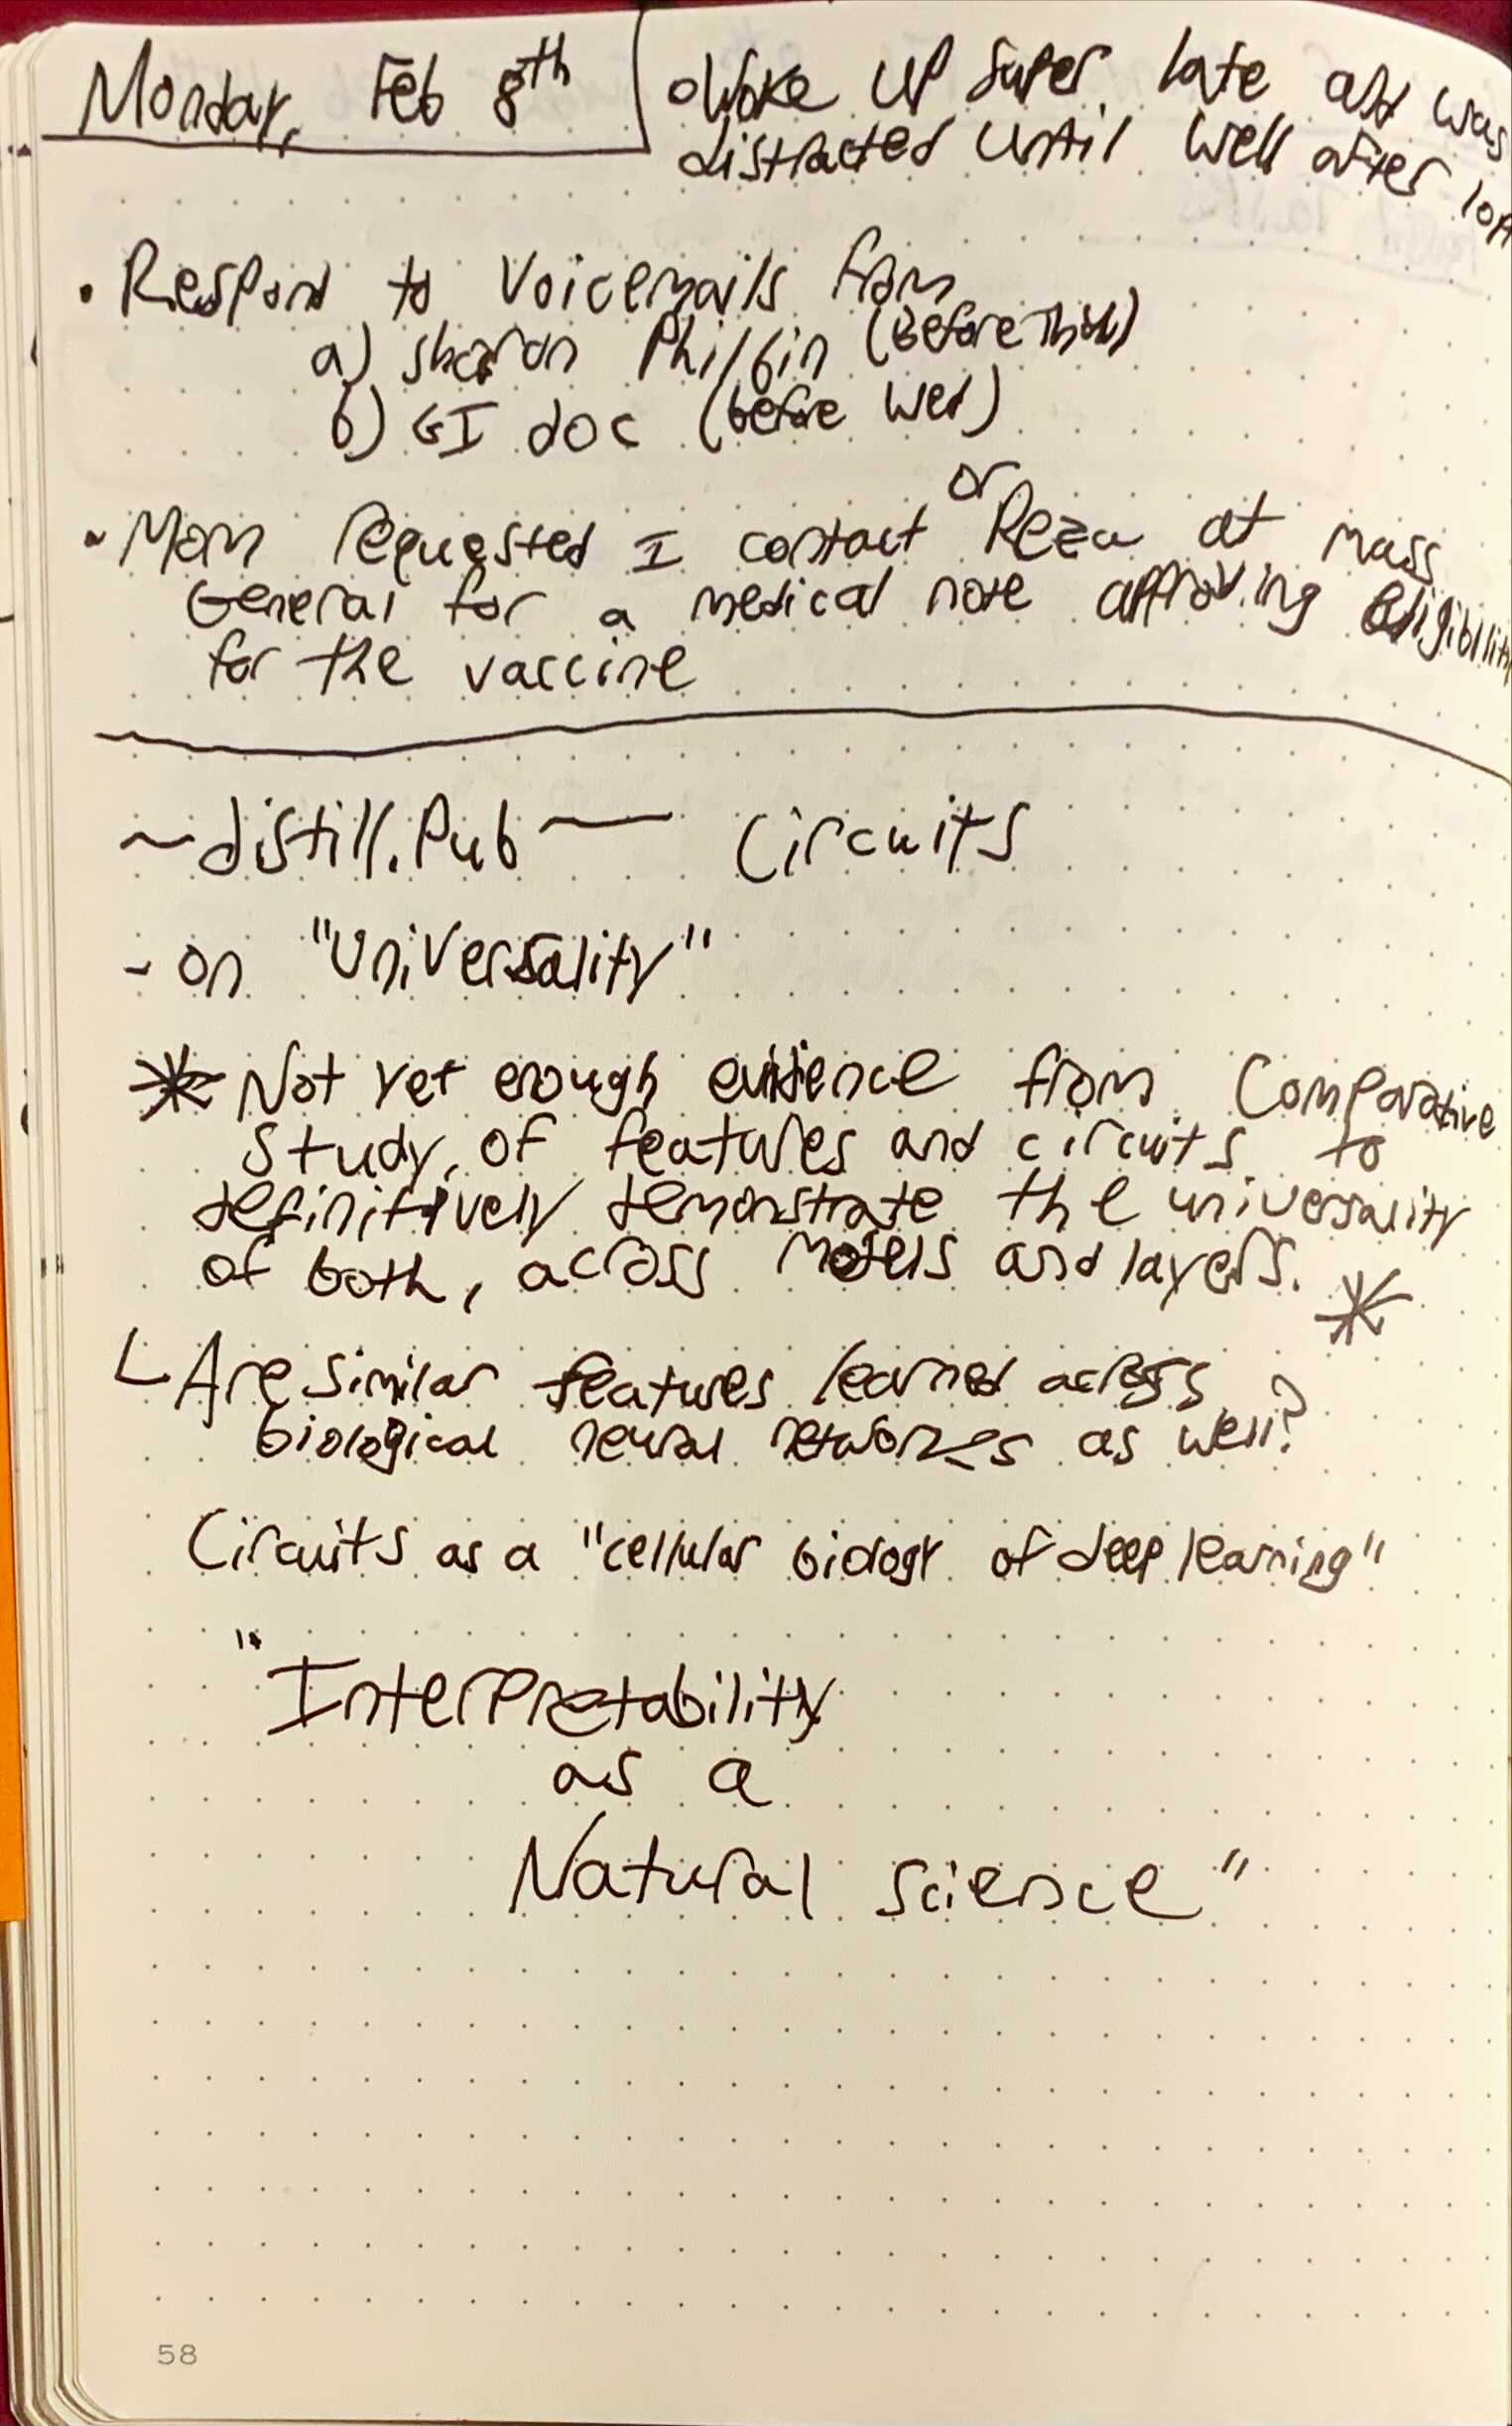 Monday, Feb 8th
Woke up super late and was
distracted until well after
• Respond to Voicemails from
a) Sharon Philbin (before Thurs)
b) GI doc (before Wed)
• Mom requested I contact Dr Reza at Mass
General for a medical note approving eligibility
for the vaccine
~distill.pub — Circuits
- on "Universality"
* Not yet enough evidence from Comparative
study of features and circuits to
definitively demonstrate the universality
of both, across models and layers. *
Are similar features learned across
biological neural networks as well?
Circuits as a "cellular biology of deep learning"
"Interpretability
as a
Natural Science"
58